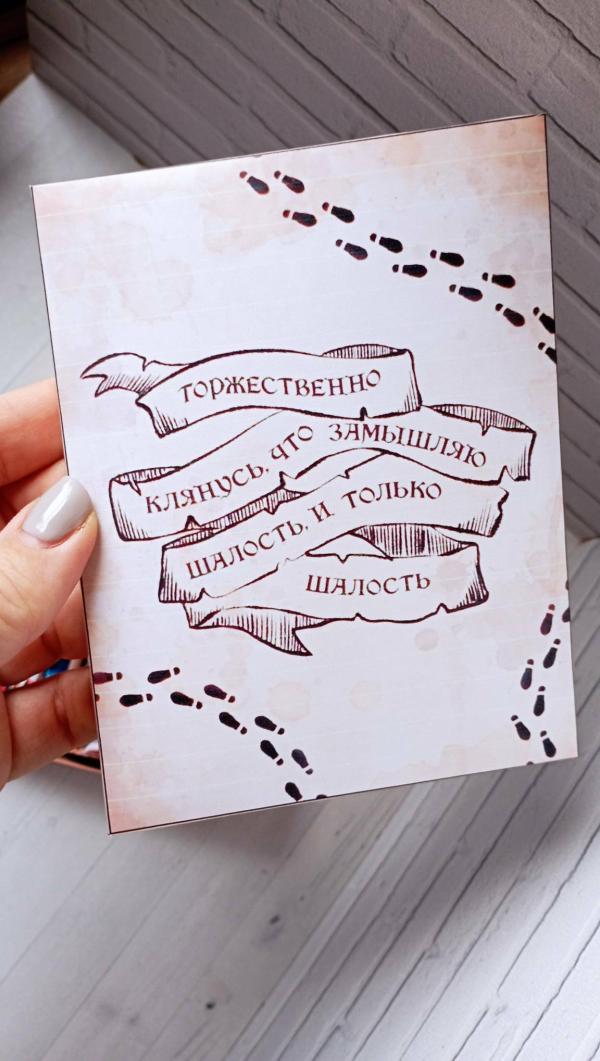 ТОРЖЕСТВЕННО
КЛЯНУСЬ, ЧТО ЗАМЫШЛЯЮ
ШАЛОСТЬ, И ТОЛЬКО
ШАЛОСТЬ